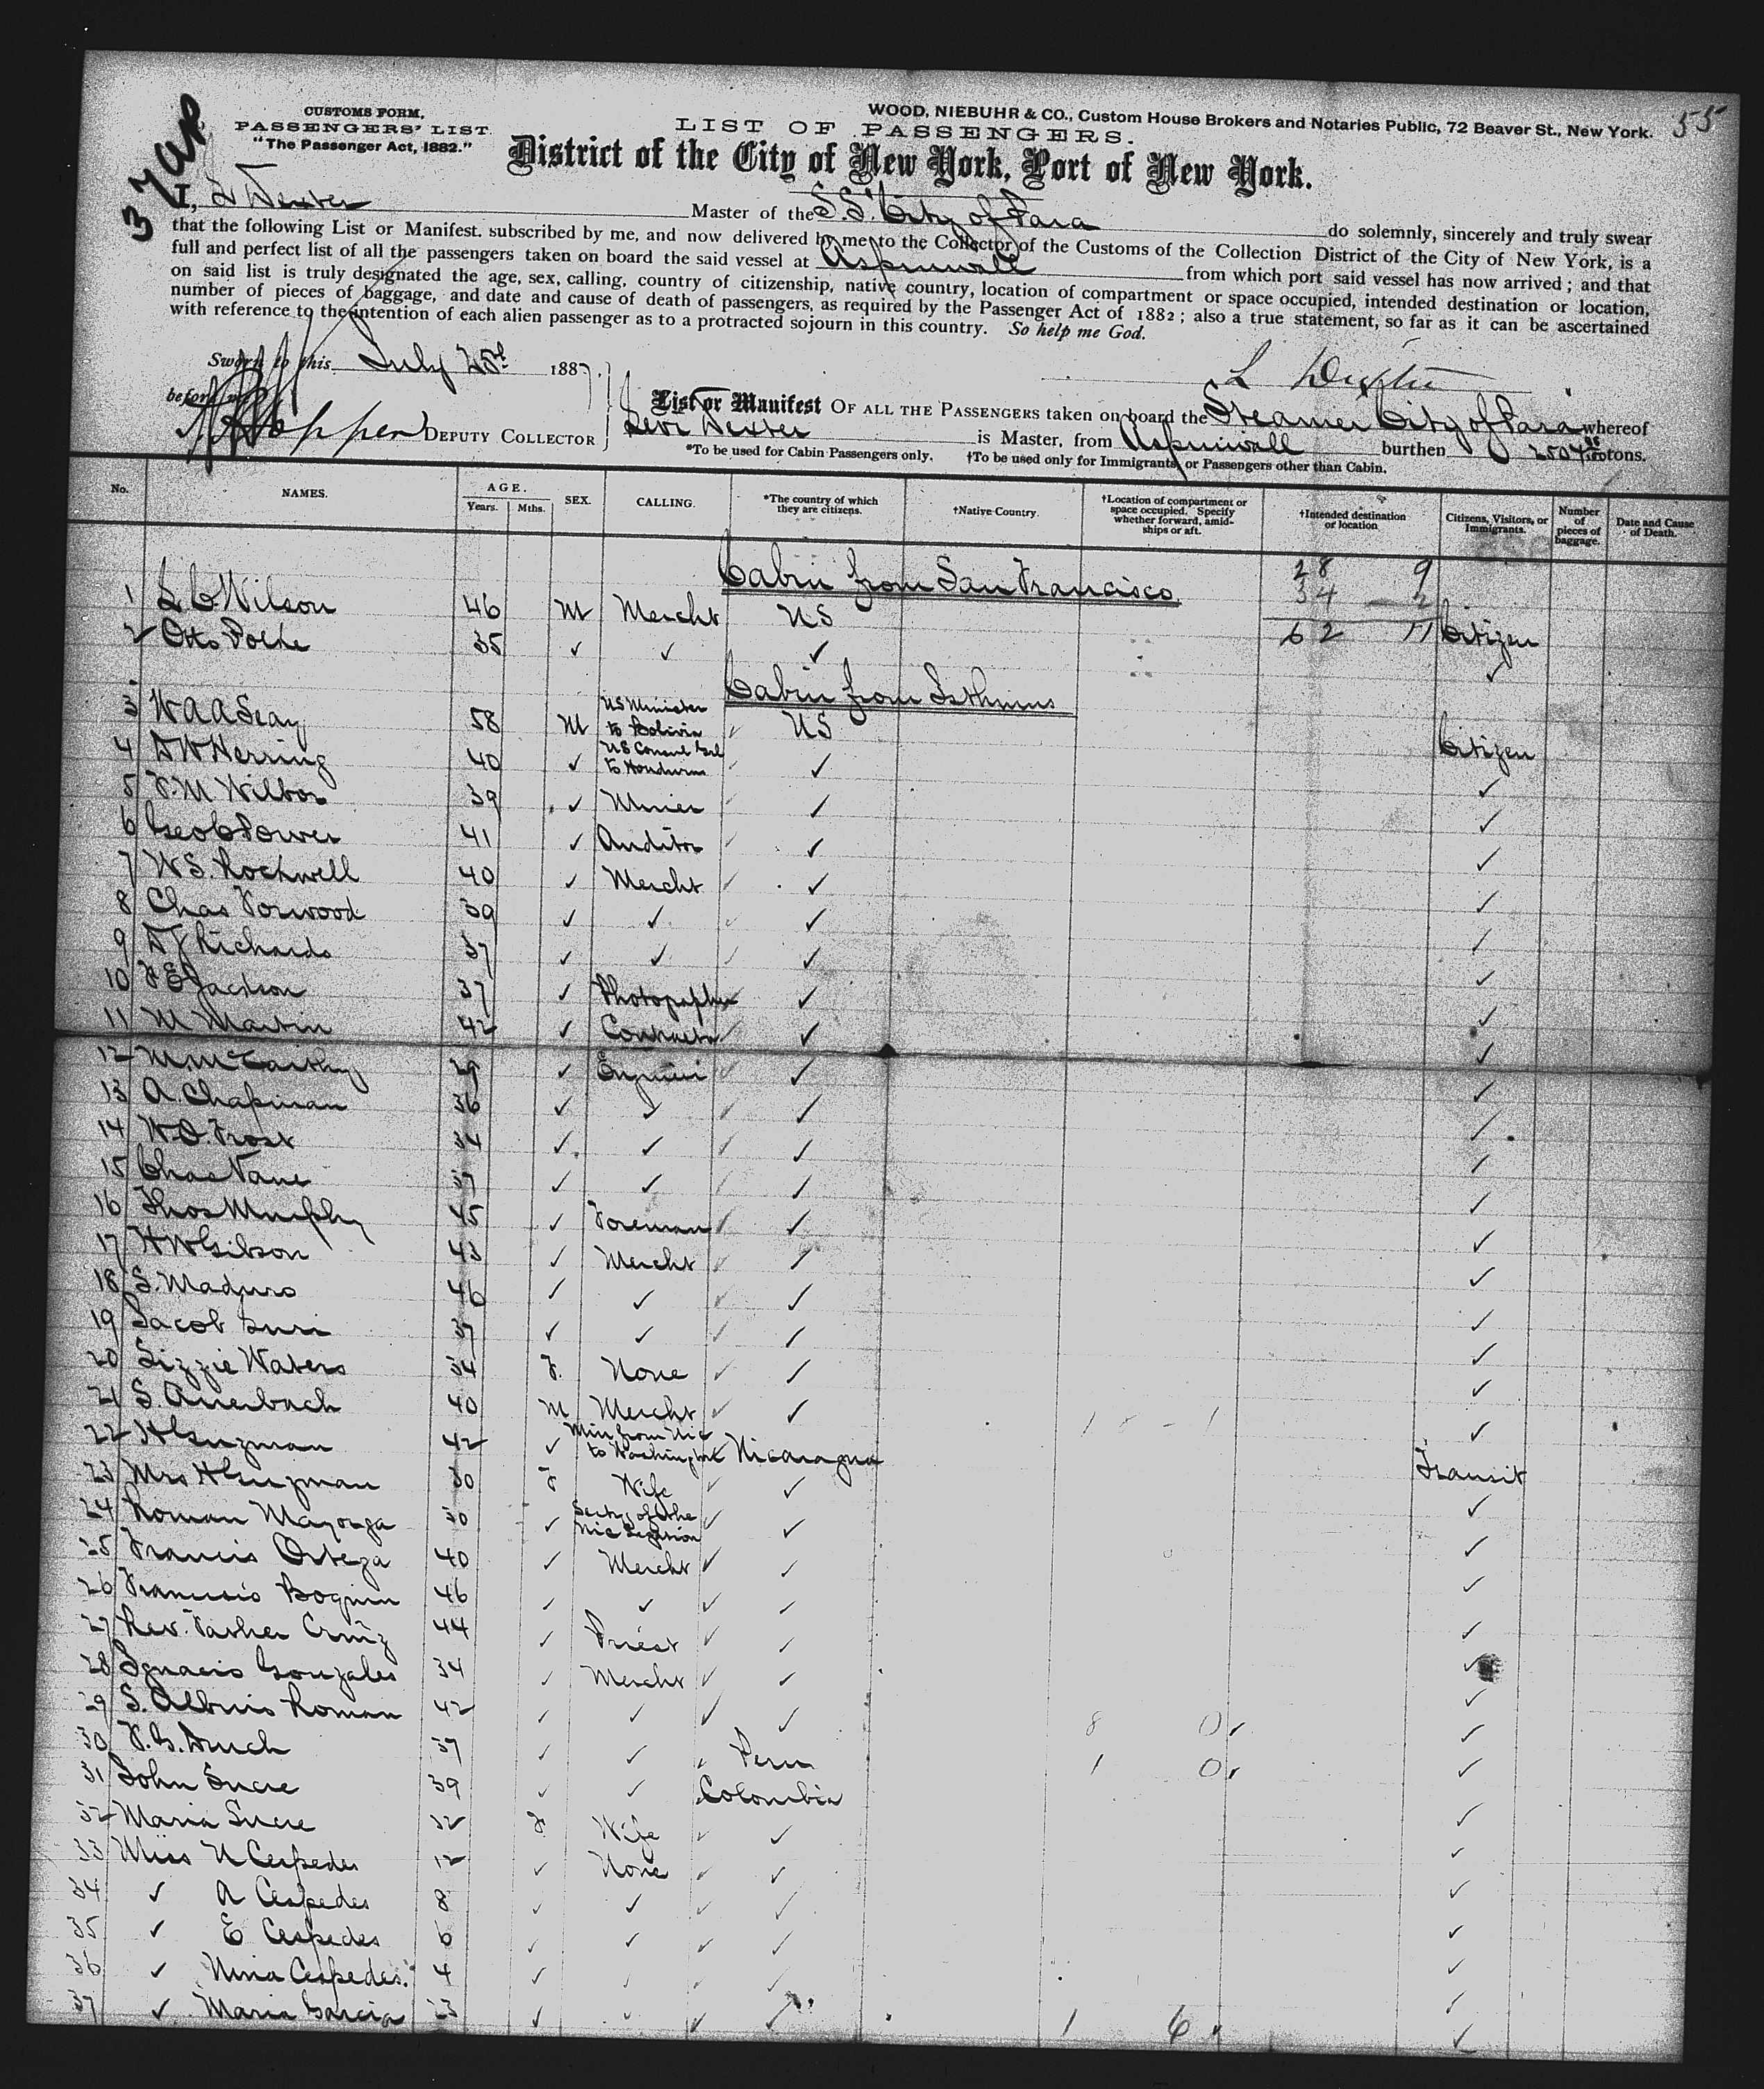 CUSTOMS FORM,
PASSENGERS' LIST.
"The Passenger Act, 1882."
WOOD, NIEBUHR & CO., Custom House Brokers and Notaries Public, 72 Beaver St., New York.
55
LIST OF PASSENGERS.
District of the City of New York, Port of New York.
I, L Dexter Master of the S.S. City of Para do solemnly, sincerely and truly swear
that the following List or Manifest. subscribed by me, and now delivered by me to the Collector of the Customs of the Collection District of the City of New York, is a
full and perfect list of all the passengers taken on board the said vessel at Aspinwall from which port said vessel has now arrived; and that
on said list is truly designated the age, sex, calling, country of citizenship, native country, location of compartment or space occupied, intended destination or location,
number of pieces of baggage, and date and cause of death of passengers, as required by the Passenger Act of 1882; also a true statement, so far as it can be ascertained
with reference to the intention of each alien passenger as to a protracted sojourn in this country. So help me God.
Sworn to this July 25th 1887.
L Dexter
before me
DEPUTY COLLECTOR
List or Manifest OF ALL THE PASSENGERS taken on board the Steamer City of Para whereof
Levi Dexter is Master, from Aspinwall burthen 2504 tons.
*To be used for Cabin Passengers only. †To be used only for Immigrants, or Passengers other than Cabin.
No. NAMES. AGE. Years. Mths. SEX. CALLING. *The country of which they are citizens. †Native Country. †Location of compartment or space occupied. Specify whether forward, amidships or aft. †Intended destination or location Citizens, Visitors, or Immigrants. Number of pieces of baggage. Date and Cause of Death.
Cabin from San Francisco
28 9
34 2
62 11
1 L C Wilson 46 M Mercht US Citizen
2 Otto 35 ✓ ✓ ✓ ✓
Cabin from Isthmus
3 W A A Seay 58 M US Minister to Bolivia ✓ US Citizen
4 D W Herring 40 ✓ US Consul Genl to Honduras ✓ ✓ ✓
5 F. M Wilbor 39 ✓ Miner ✓ ✓ ✓
6 Geo C Power 41 ✓ Auditor ✓ ✓ ✓
7 W S. Rockwell 40 ✓ Mercht ✓ ✓ ✓
8 Chas Norwood 39 ✓ ✓ ✓ ✓ ✓
9 D J Richards 37 ✓ ✓ ✓ ✓ ✓
10 F E Jackson 37 ✓ Photographer ✓ ✓ ✓
11 M Martin 42 ✓ Contractor ✓ ✓ ✓
12 M. McCarthy 29 ✓ Engineer ✓ ✓ ✓
13 A. Chapman 36 ✓ ✓ ✓ ✓ ✓
14 W. O. Frost 34 ✓ ✓ ✓ ✓ ✓
15 Chas Vane 37 ✓ ✓ ✓ ✓ ✓
16 Thos Murphy 45 ✓ Foreman ✓ ✓ ✓
17 H W Gibson 43 ✓ Mercht ✓ ✓ ✓
18 S. Maduro 46 ✓ ✓ ✓ ✓ ✓
19 Jacob 37 ✓ ✓ ✓ ✓ ✓
20 Lizzie Waters 34 F. None ✓ ✓ ✓
21 S. Auerbach 40 M Mercht ✓ ✓ ✓
22 H Guzman 42 ✓ Min from Nic to Washington ✓ Nicaragua Transit
23 Mrs H Guzman 30 F Wife ✓ ✓ ✓
24 Roman Mayorga 30 ✓ Secty of the Nic Legation ✓ ✓ ✓
25 Francis Ortega 40 ✓ Mercht ✓ ✓ ✓
26 Francisco Boquin 46 ✓ ✓ ✓ ✓ ✓
27 Rev. Father Cruz 44 ✓ Priest ✓ ✓ ✓
28 Ignacio Gonzales 34 ✓ Mercht ✓ ✓ ✓
29 S. Albino Roman 42 ✓ ✓ ✓ ✓ 8 0 ✓
30 37 ✓ ✓ Peru 1 0 ✓
31 John Sucre 39 ✓ ✓ Colombia ✓
32 Maria Sucre 32 F Wife ✓ ✓ ✓
33 Miss N Cespedes 12 ✓ None ✓ ✓ ✓
34 ✓ A Cespedes 8 ✓ ✓ ✓ ✓ ✓
35 ✓ E Cespedes 6 ✓ ✓ ✓ ✓ ✓
36 ✓ Nina Cespedes. 4 ✓ ✓ ✓ ✓ ✓
37 ✓ Maria Garcia 23 ✓ ✓ ✓ ✓ 1 6 ✓